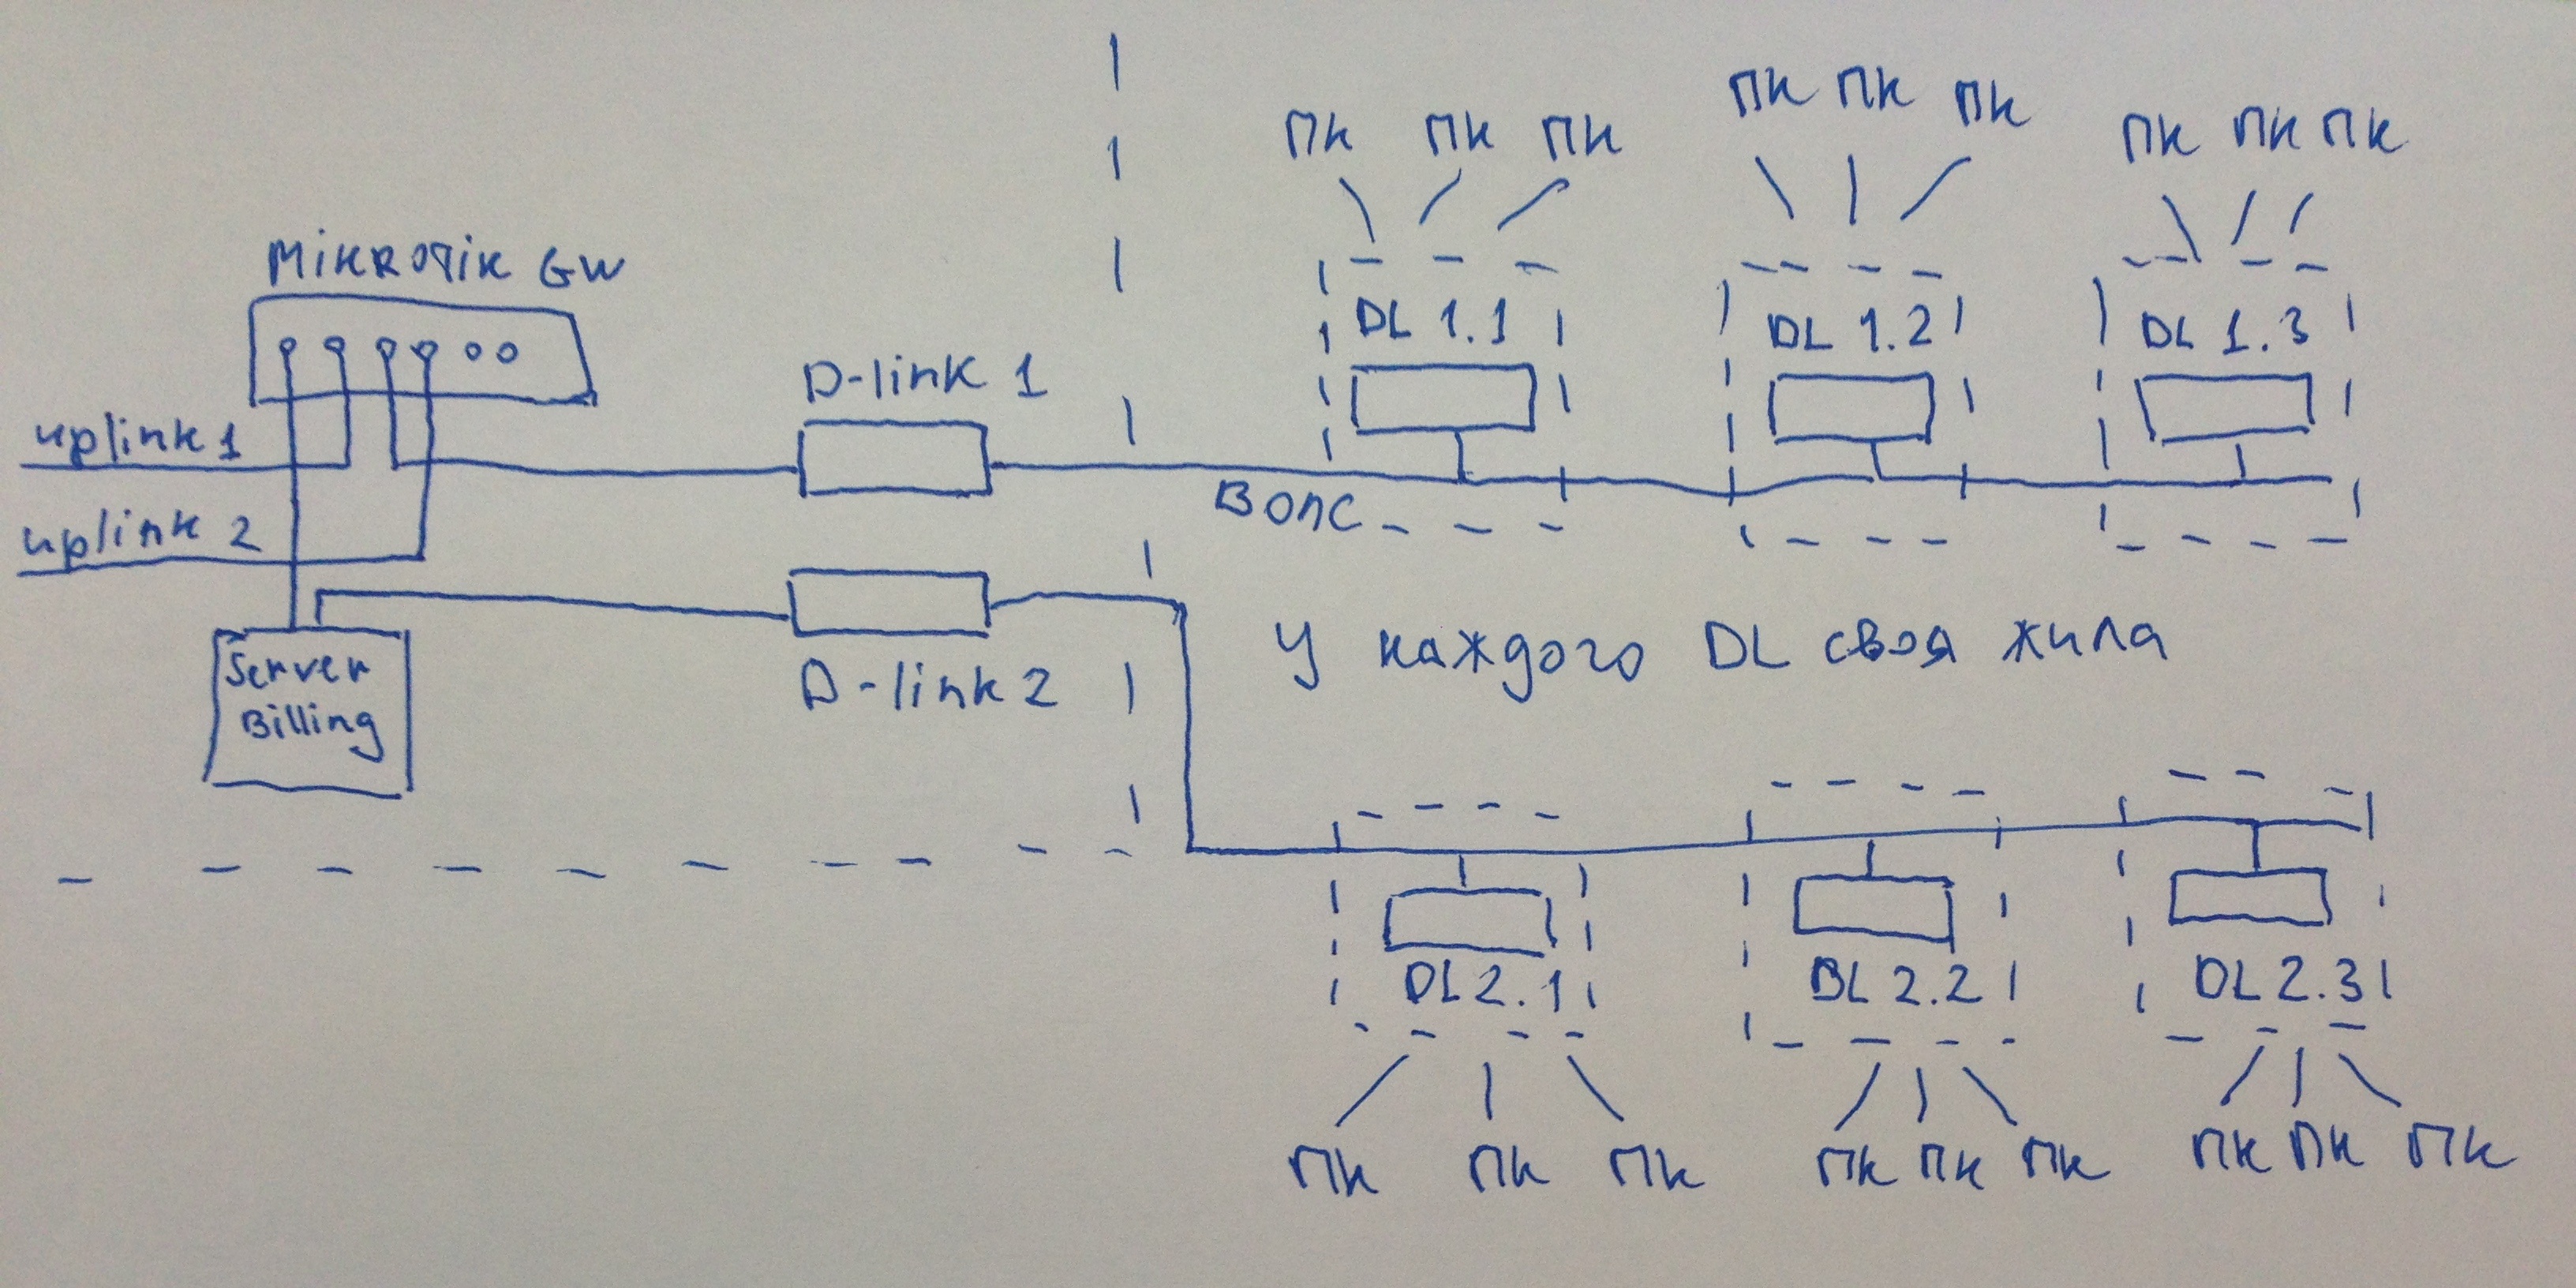 ПК ПК ПК
ПК ПК ПК
ПК ПК ПК
MikROTik GW
DL 1.1
DL 1.2
DL 1.3
D-link 1
uplink 1
Волс
uplink 2
Server
Billing
D-link 2
У каждого DL своя жила
DL 2.1
BL 2.2
DL 2.3
ПК ПК ПК
ПК ПК ПК
ПК ПК ПК